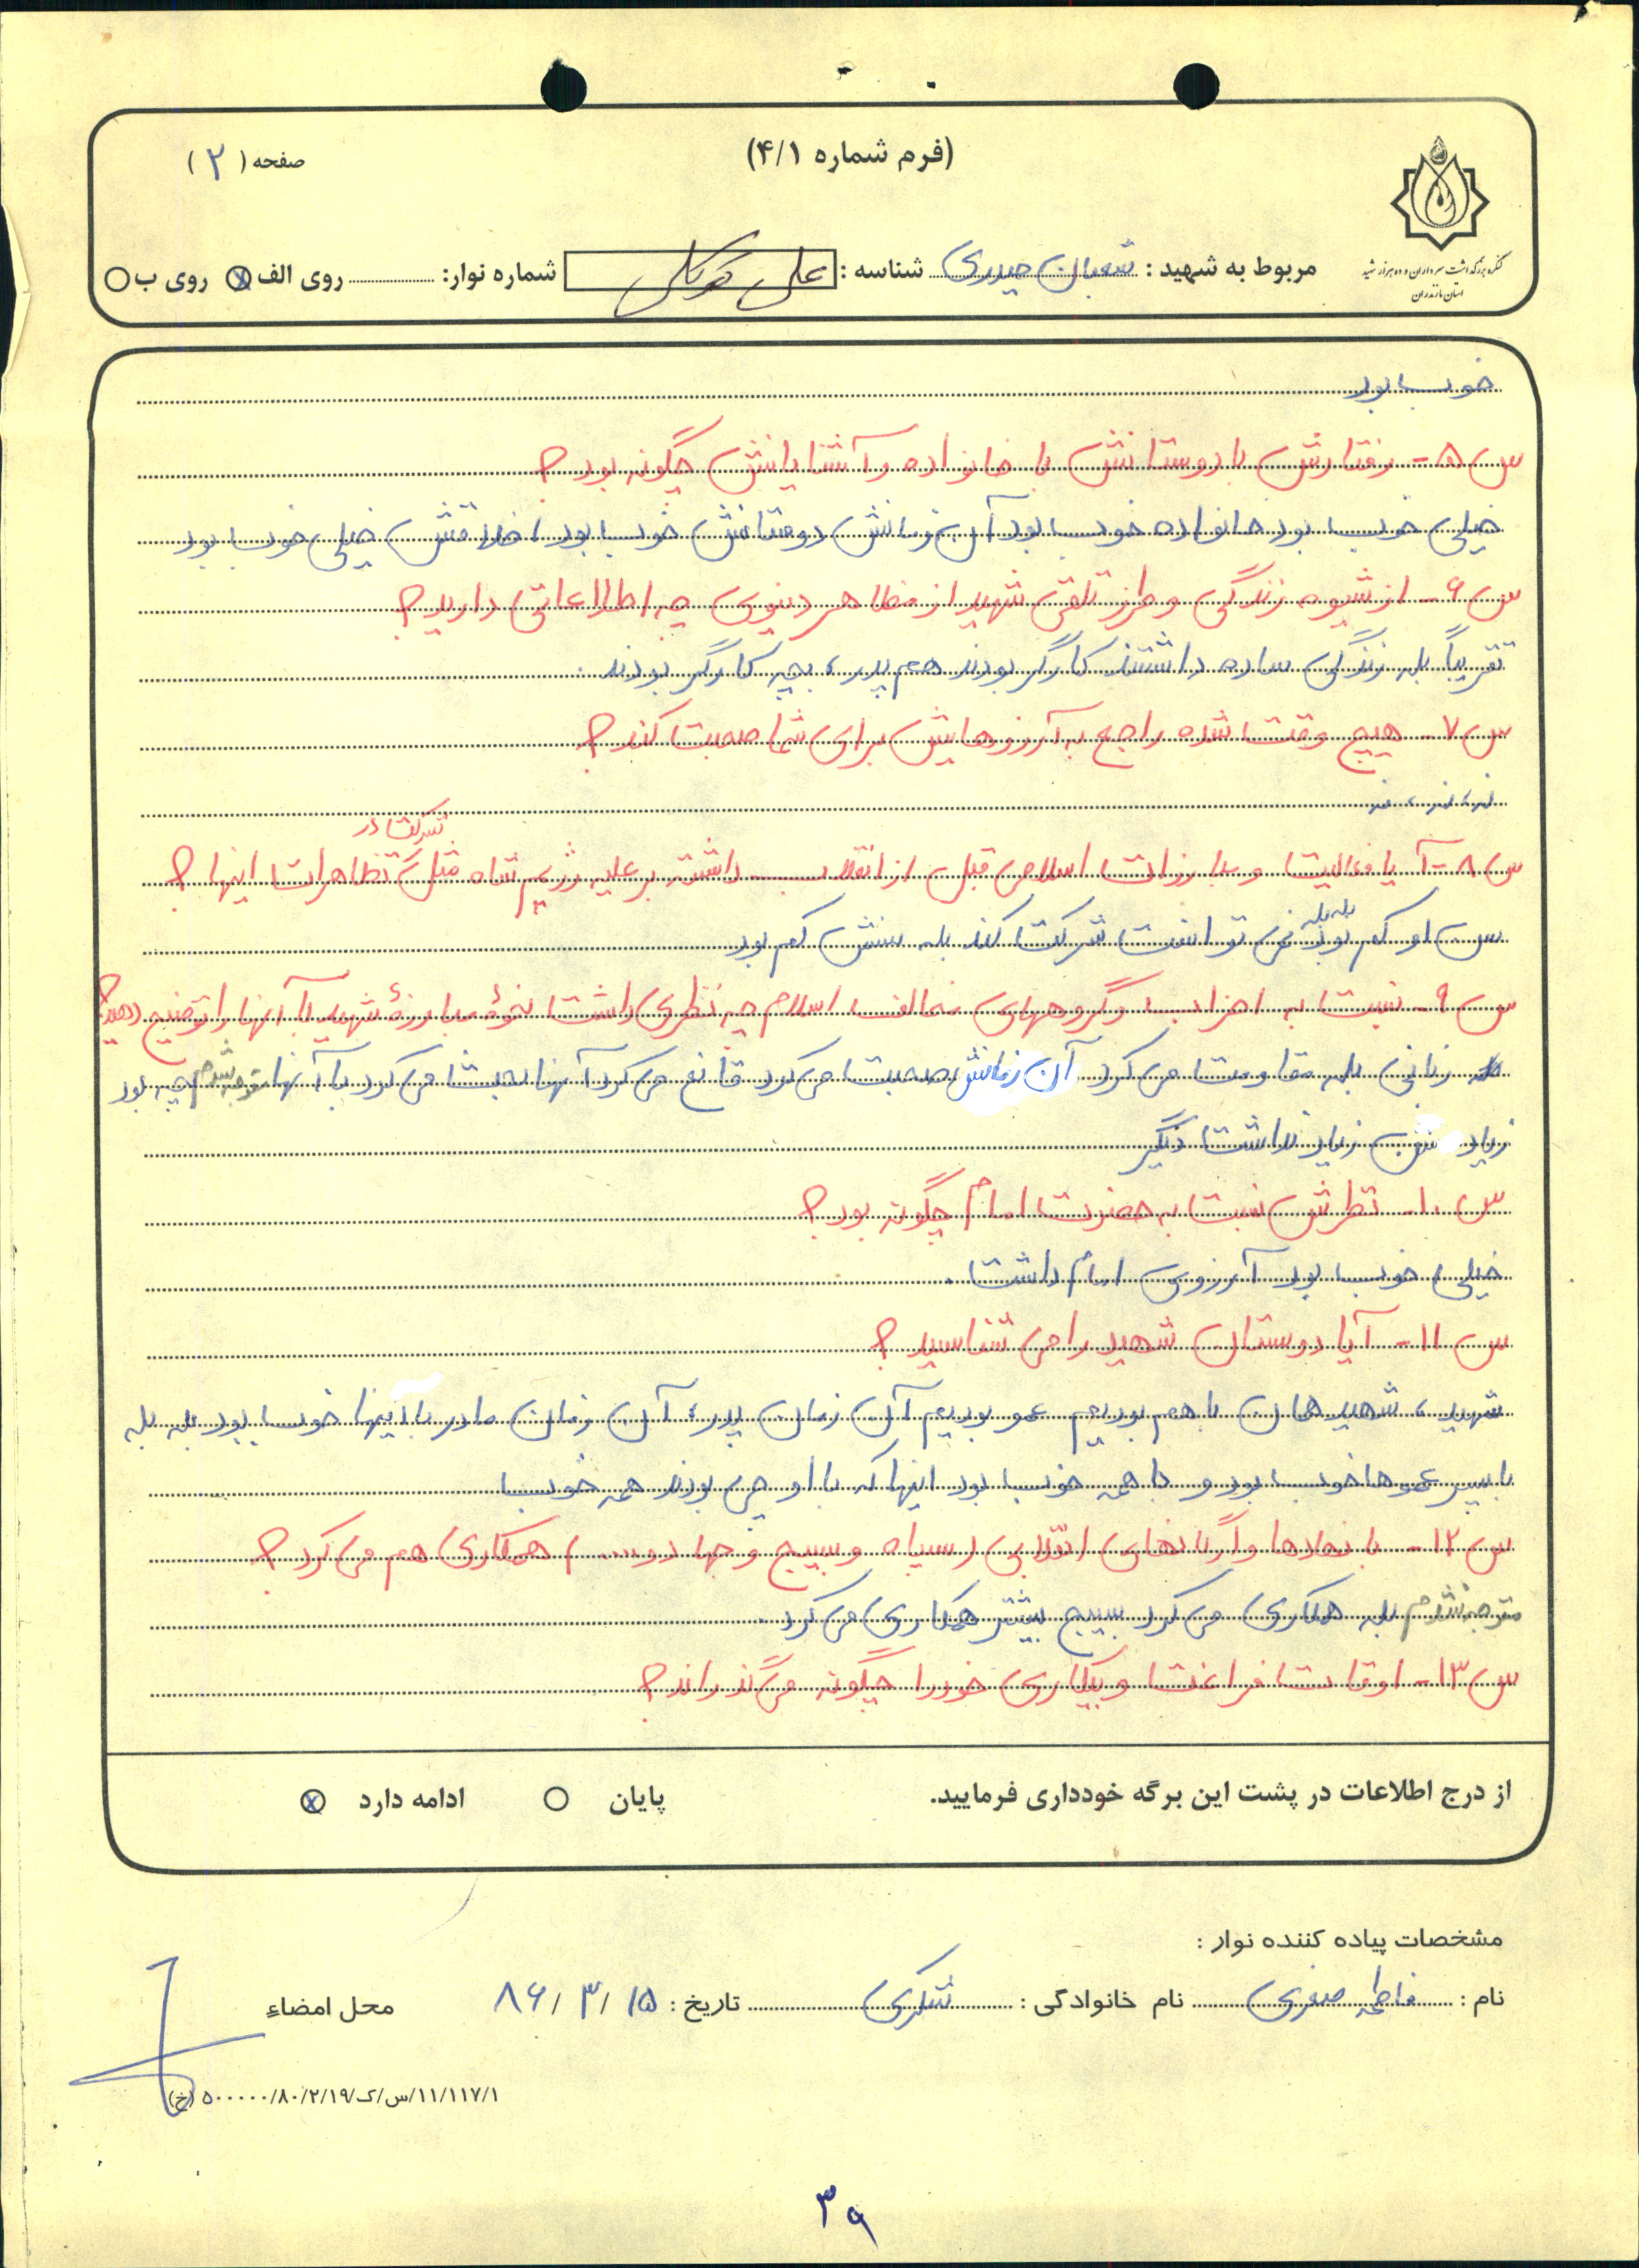 (فرم شماره ۴/۱)
صفحه (۲)
کنگره بزرگداشت سرداران و ده هزار شهید
استان مازندران
مربوط به شهید : شعبان حیدری شناسه : علی شماره نوار: روی الف روی ب
خوب بود
س ۵- رفتارش با دوستانش با خانواده و آشنایانش چگونه بود؟
خیلی خوب بود خانواده خوب بود آن زمانش دوستانش خوب بود، اخلاقش خیلی خوب بود
س ۶- از شیوه زندگی و طرز تلقی شهید از مظاهر دنیوی چه اطلاعاتی دارید؟
تقریباً بله زندگی ساده داشتند کارگر بودند هم پدر، بچه کارگر بودند.
س ۷- هیچ وقت شده راجع به آرزوهایش برای شما صحبت کند؟
نه، نه، نه
س ۸- آیا فعالیت و مبارزات اسلامی قبل از انقلاب داشته بر علیه رژیم شاه مثل شرکت در تظاهرات اینها؟
سن او کم بود بله بله نمی توانست شرکت کند بله سنش کم بود
س ۹- نسبت به احزاب و گروههای مخالف اسلام چه نظری داشت نحوهٔ مبارزهٔ شهید با آنها را توضیح دهید؟
زمانی بله مقاومت می کرد آن زمانش صحبت می کرد قانع می کرد آنها بحث می کرد با آنها متوجه شدم چه بود
زیاد سنش زیاد نداشت دیگر
س ۱۰- نظرش نسبت به حضرت امام چگونه بود؟
خیلی خوب بود آرزوی امام داشت.
س ۱۱- آیا دوستان شهید را می شناسید؟
شهید، شهید همان با هم بودیم عمو بودیم آن زمان پدر، آن زمان مادر با اینها خوب بود بله بله
با پسر عموها خوب بود و با همه خوب بود اینها که با او می بودند همه خوب
س ۱۲- با نهادها و ارگانهای انقلابی (سپاه و بسیج و جهاد و...) همکاری هم می کرد؟
متوجه شدم بله همکاری می کرد بسیج بیشتر همکاری می کرد.
س ۱۳- اوقات فراغت و بیکاری خود را چگونه می گذراند؟
از درج اطلاعات در پشت این برگه خودداری فرمایید.
پایان ادامه دارد
مشخصات پیاده کننده نوار :
نام : فاطمه صفری نام خانوادگی : شکری تاریخ : ۸۶/۳/۱۵ محل امضاء
۱۱/۱۱۷/۱/س/ک/۸۰/۲/۱۹/۵۰۰۰۰۰ (خ)
۳۹